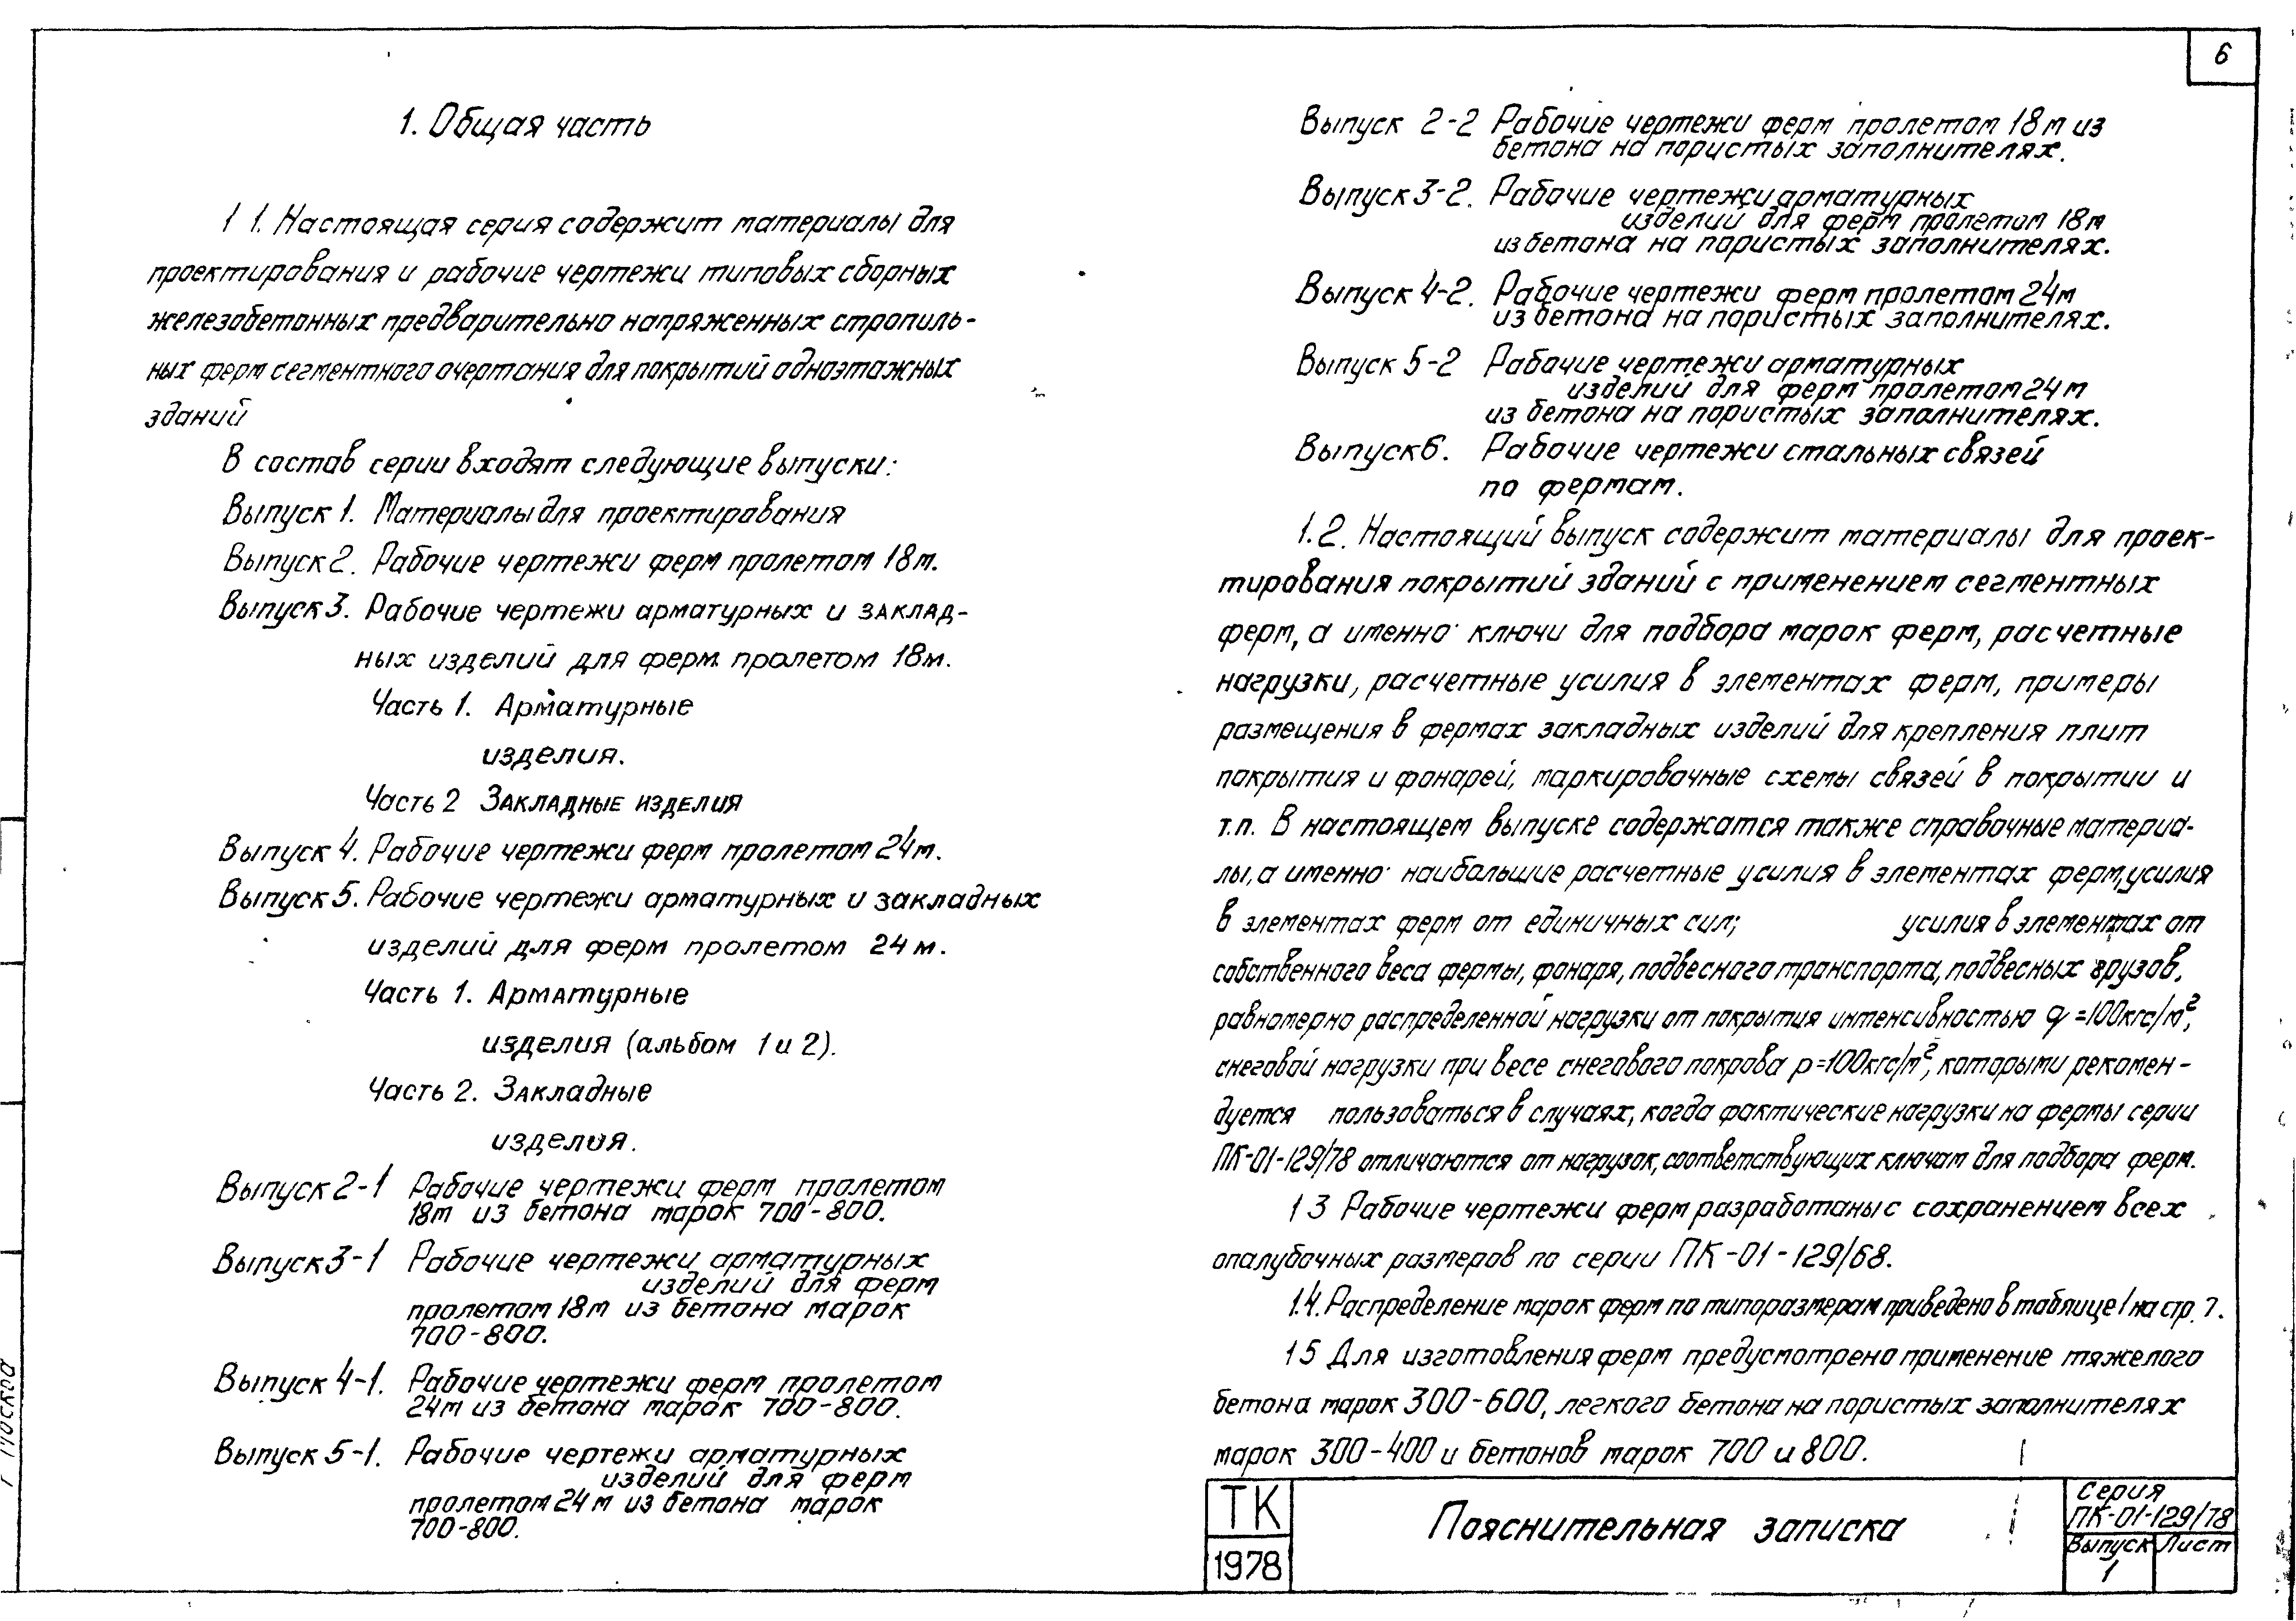 6
1. Общая часть
1 1. Настоящая серия содержит материалы для
проектирования и рабочие чертежи типовых сборных
железобетонных предварительно напряженных стропиль-
ных ферм сегментного очертания для покрытий одноэтажных
зданий
В состав серии входят следующие выпуски:
Выпуск 1. Материалы для проектирования
Выпуск 2. Рабочие чертежи ферм пролетом 18м.
Выпуск 3. Рабочие чертежи арматурных и заклад-
ных изделий для ферм пролетом 18м.
Часть 1. Арматурные
изделия.
Часть 2 Закладные изделия
Выпуск 4. Рабочие чертежи ферм пролетом 24м.
Выпуск 5. Рабочие чертежи арматурных и закладных
изделий для ферм пролетом 24м.
Часть 1. Арматурные
изделия (альбом 1 и 2).
Часть 2. Закладные
изделия.
Выпуск 2-1 Рабочие чертежи ферм пролетом
18м из бетона марок 700-800.
Выпуск 3-1 Рабочие чертежи арматурных
изделий для ферм
пролетом 18м из бетона марок
700-800.
Выпуск 4-1. Рабочие чертежи ферм пролетом
24м из бетона марок 700-800.
Выпуск 5-1. Рабочие чертежи арматурных
изделий для ферм
пролетом 24м из бетона марок
700-800.
Выпуск 2-2 Рабочие чертежи ферм пролетом 18м из
бетона на пористых заполнителях.
Выпуск 3-2. Рабочие чертежи арматурных
изделий для ферм пролетом 18м
из бетона на пористых заполнителях.
Выпуск 4-2. Рабочие чертежи ферм пролетом 24м
из бетона на пористых заполнителях.
Выпуск 5-2 Рабочие чертежи арматурных
изделий для ферм пролетом 24м
из бетона на пористых заполнителях.
Выпуск 6. Рабочие чертежи стальных связей
по фермам.
1.2. Настоящий выпуск содержит материалы для проек-
тирования покрытий зданий с применением сегментных
ферм, а именно: ключи для подбора марок ферм, расчетные
нагрузки, расчетные усилия в элементах ферм, примеры
размещения в фермах закладных изделий для крепления плит
покрытия и фонарей, маркировочные схемы связей в покрытии и
т.п. В настоящем выпуске содержатся также справочные материа-
лы, а именно: наибольшие расчетные усилия в элементах ферм, усилия
в элементах ферм от единичных сил; усилия в элементах от
собственного веса фермы, фонаря, подвесного транспорта, подвесных грузов,
равномерно распределенной нагрузки от покрытия интенсивностью q=100кгс/м²,
снеговой нагрузки при весе снегового покрова р=100кгс/м², которыми рекомен-
дуется пользоваться в случаях, когда фактические нагрузки на фермы серии
ПК-01-129/78 отличаются от нагрузок, соответствующих ключам для подбора ферм.
1 3 Рабочие чертежи ферм разработаны с сохранением всех
опалубочных размеров по серии ПК-01-129/68.
1.4. Распределение марок ферм по типоразмерам приведено в таблице 1 на стр. 7.
1 5 Для изготовления ферм предусмотрено применение тяжелого
бетона марок 300-600, легкого бетона на пористых заполнителях
марок 300-400 и бетонов марок 700 и 800.
ТК
1978
Пояснительная записка
Серия
ПК-01-129/78
Выпуск Лист
1
г Москва